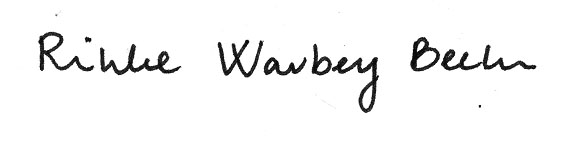 Rikke Warberg Becker